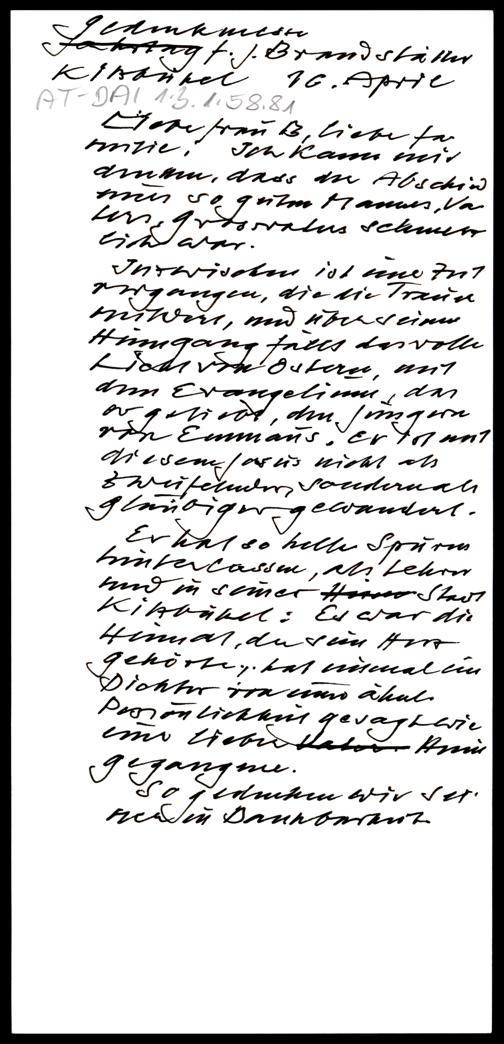 Gedenkmesse
Jahrtag f. J. Brandstätter
Kitzbühel 16. April
AT-DAI 1.3.1.58.81
Liebe Frau B, liebe Fa
milie! Ich kann mir
denken, dass der Abschied
eines so guten Mannes, Va
ters, Grossvaters schmerz
lich war.
Inzwischen ist eine Zeit
vergangen, die die Trauer
mildert, und über seinen
Heimgang fällt das volle
Licht von Ostern, mit
dem Evangelium, das
er geliebt, den Jüngern
von Emmaus. Er ist mit
diesem Jesus nicht als
Zweifelnder, sondern als
Gläubiger gewandert.
Er hat so helle Spuren
hinterlassen, als Lehrer
und in seiner Stadt
Kitzbühel: Es war die
Heimat, der sein Herz
gehörte, hat einmal ein
Dichter von einer ähnl.
Persönlichkeit gesagt wie
eine liebe Heim
gegangene.
So gedenken wir sei
ner in Dankbarkeit